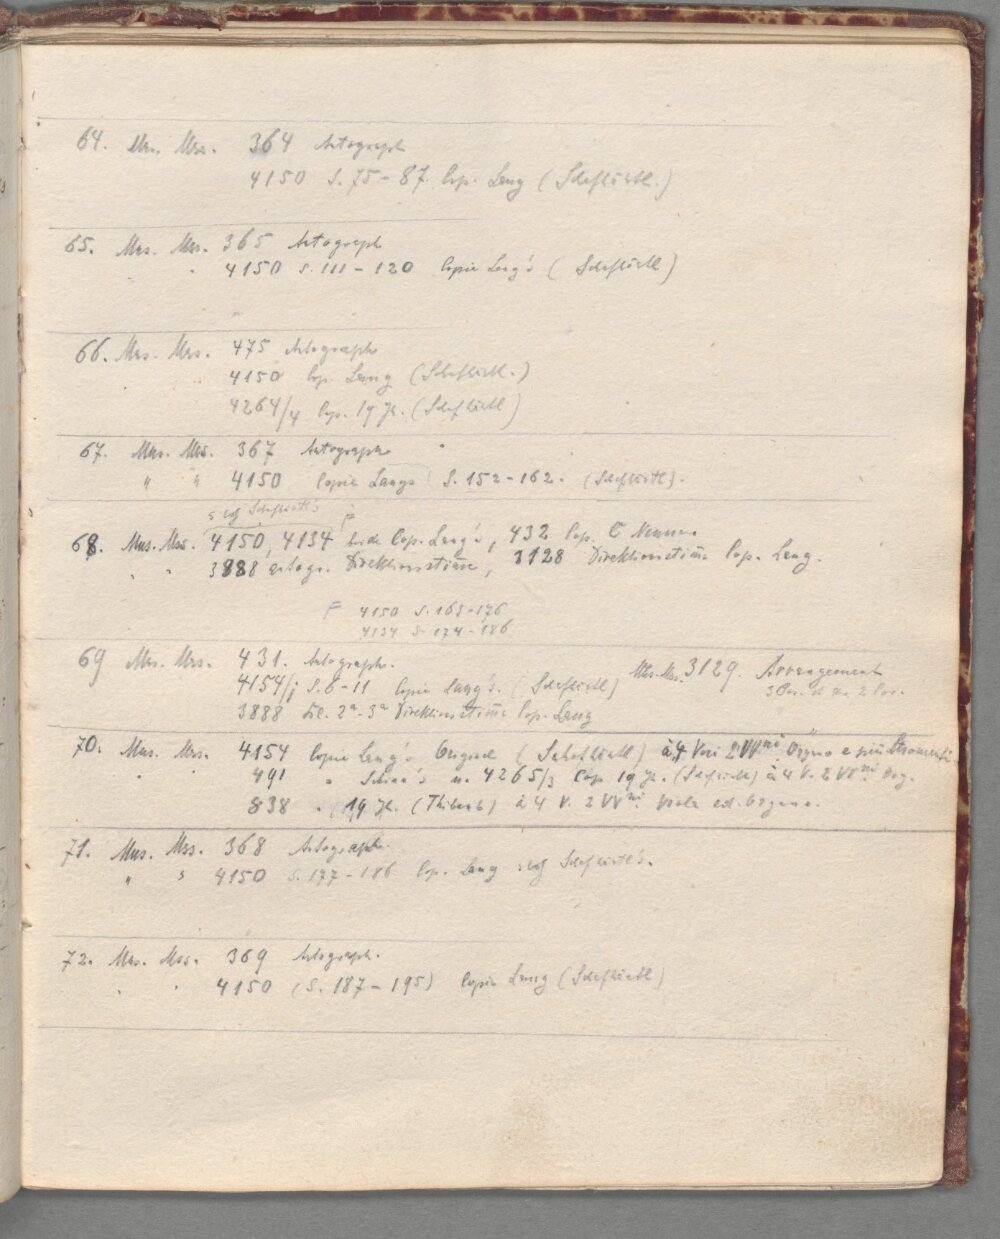 64. Mus. Mss. 364 Autograph
4150 S. 75-87. Cop. Lang (Schafhäutl.)
65. Mus. Mss. 365 Autograph
" 4150 S. 111-120 Copie Lang's (Schafhäutl)
66. Mus. Mss. 475 Autograph
4150 Cop. Lang (Schafhäutl.)
4264/4 Cop. 19 Jh. (Schafhäutl)
67. Mus. Mss. 367 Autograph
" " 4150 Copie Langs S. 152-162. (Schafhäutl).
Schafhäutl's
68. Mus. Mss. 4150, 4134 beide Cop. Lang's, 432 Cop. C
" " 3888 autogr. Direktionsstimme, 3128 Direktionsstimme Cop. Lang.
4150 S. 165-176
4134 S. 174-186
69 Mus. Mss. 431. Autograph. Mus. Mss. 3129. Arrangement
4154/j S. 6-11 Copie Lang's. (Schafhäutl)
3888 2a-3a Direktionsstimme Cop. Lang
70. Mus. Mss. 4154 Copie Lang's (Schafhäutl) à 4 Voci 2 VVni Organo e più Stromenti.
" " 491 " u. 4265/3 Cop 19 Jh. (Schafhäutl) à 4 V. 2 VVni Org.
838 " 19 Jh. (Thibaut) à 4 V. 2 VVni Viola ed Organo.
71. Mus. Mss. 368 Autograph.
" " 4150 S. 177-186 Cop. Lang Schafhäutl's.
72. Mus. Mss. 369 Autograph.
" " 4150 (S. 187-195) Copie Lang (Schafhäutl)